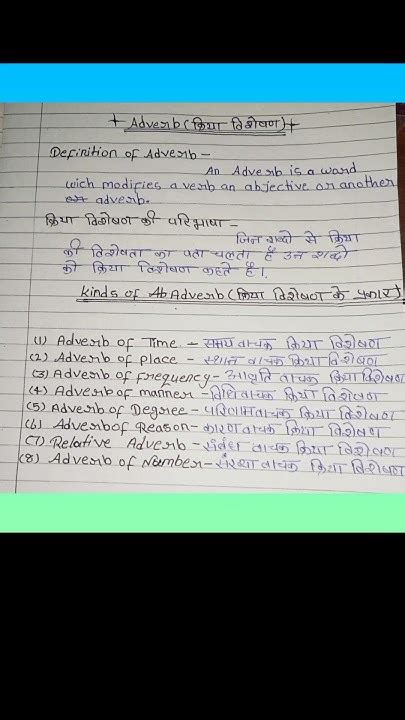 + Adverb (क्रिया विशेषण) +
Definition of Adverb -
An Adverb is a word
wich modifies a verb an abjective or another
adverb.
क्रिया विशेषण की परिभाषा -
जिन शब्दो से क्रिया
की विशेषता का पता चलता है उन शब्दो
को क्रिया विशेषण कहते है।
Kinds of Ab Adverb (क्रिया विशेषण के प्रकार)
(1) Adverb of Time - समय वाचक क्रिया विशेषण
(2) Adverb of place - स्थान वाचक क्रिया विशेषण
(3) Adverb of frequency - आवृति वाचक क्रिया विशेषण
(4) Adverb of manner - विधिवाचक क्रिया विशेषण
(5) Adverb of Degree - परिणामवाचक क्रिया विशेषण
(6) Adverb of Reason - कारण वाचक क्रिया विशेषण
(7) Relative Adverb - संबंध वाचक क्रिया विशेषण
(8) Adverb of Number - संख्या वाचक क्रिया विशेषण